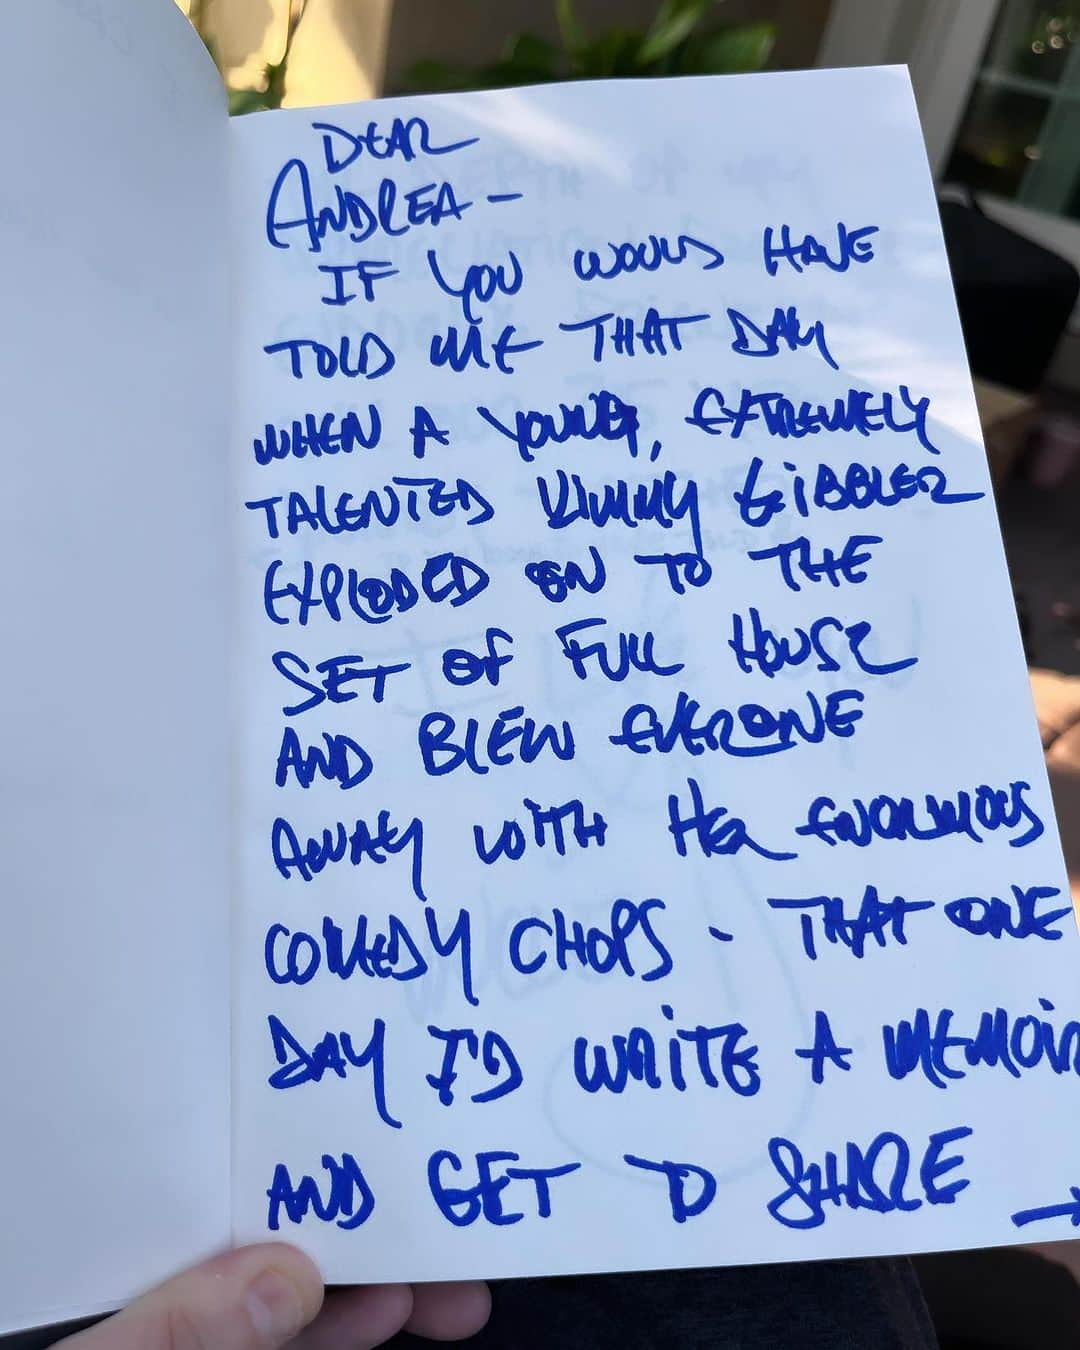 DEAR
ANDREA -
IF YOU WOULD HAVE
TOLD ME THAT DAY
WHEN A YOUNG, EXTREMELY
TALENTED KIMMY GiBBLER
EXPLODED ON TO THE
SET OF FULL HOUSE
AND BLEW EVERONE
AWAY WITH HER ENORMOUS
COMEDY CHOPS - THAT ONE
DAY I'D WRiTE A MEMOiR
AND GET TO SHARE →